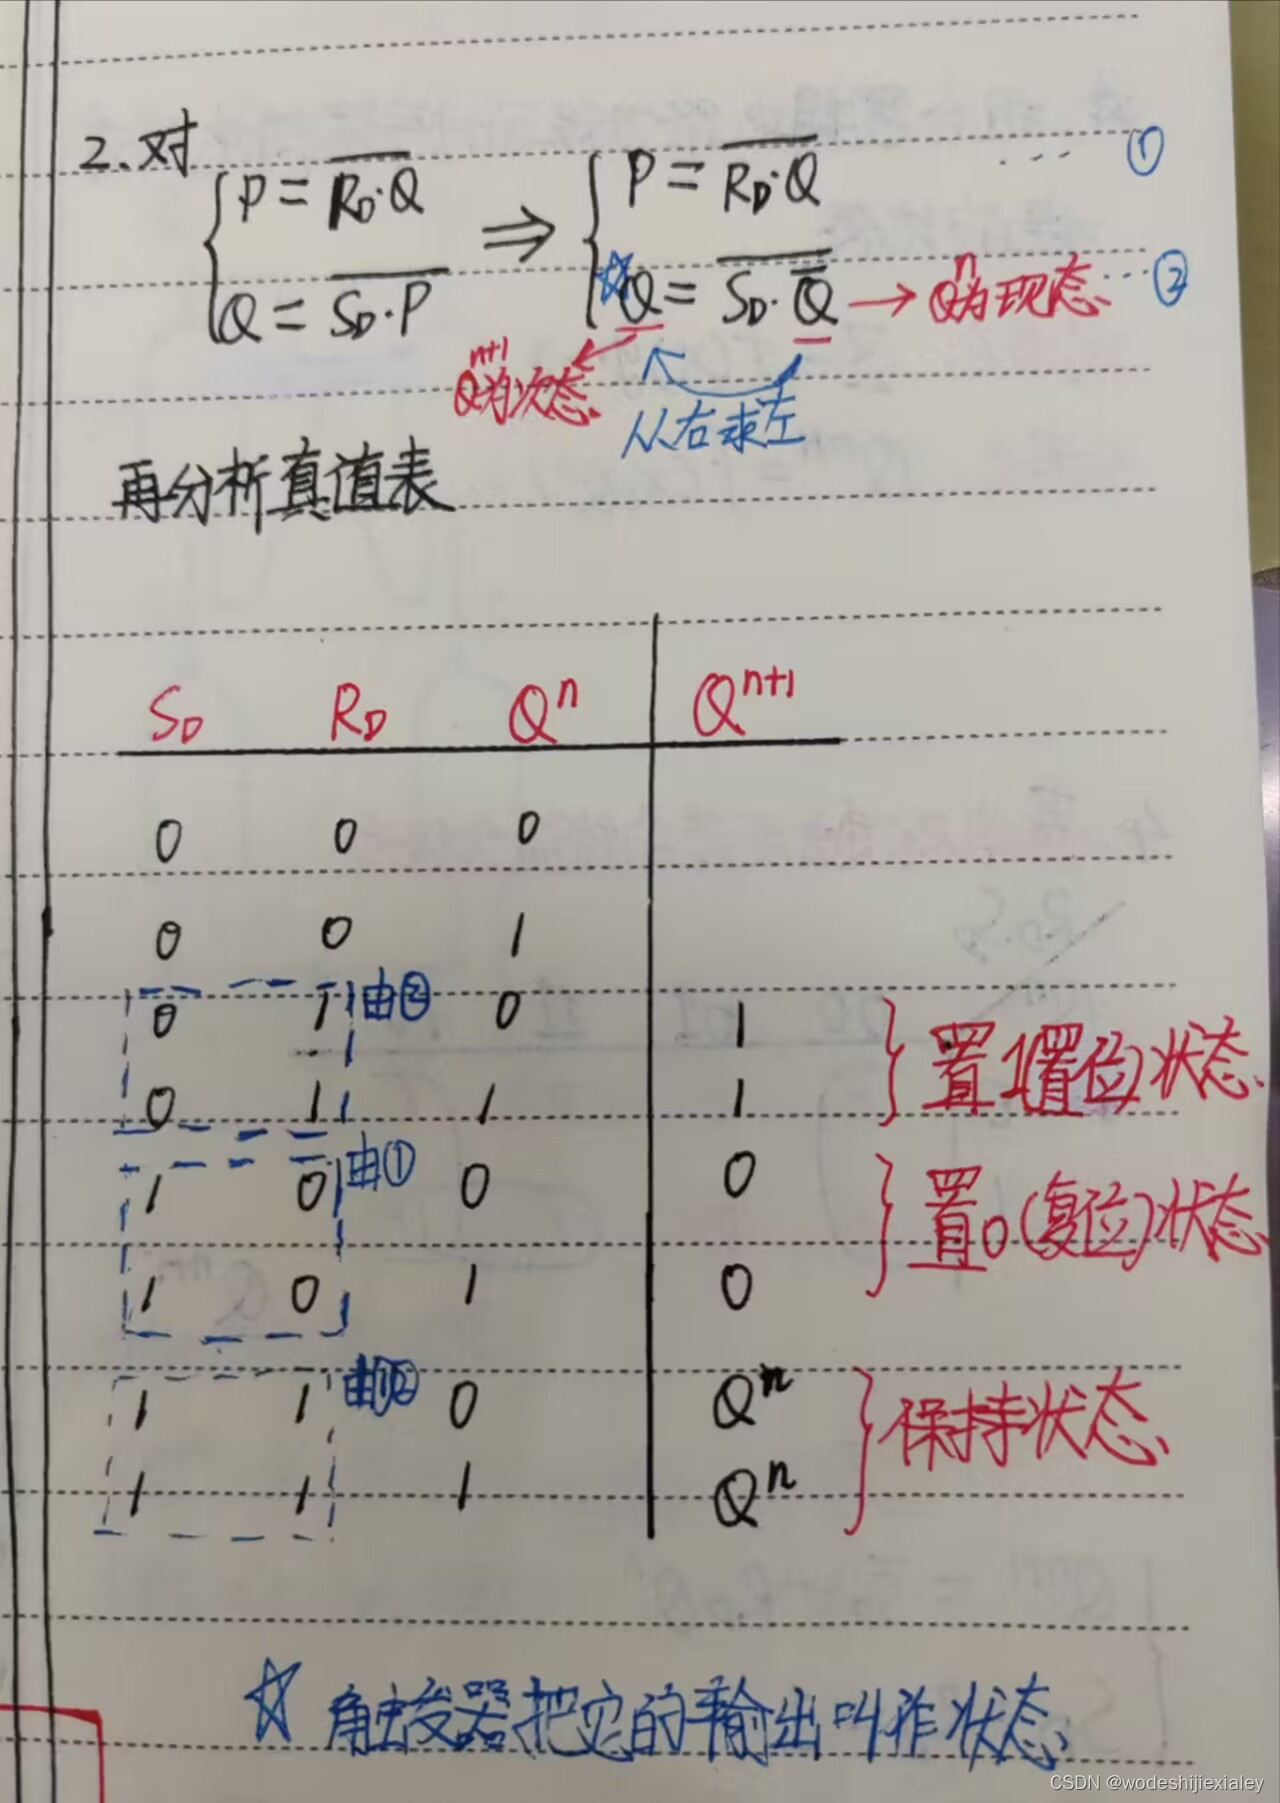 2.对
P = \overline{R_D·Q} ⇒ P = \overline{R_D·Q} ... ①
Q = \overline{S_D·P} ☆ Q = \overline{S_D·\overline{Q}} → Q^n为现态 ... ②
Q^{n+1}为次态
从右求左
再分析真值表
S_D R_D Q^n Q^{n+1}
0 0 0
0 0 1
0 1 由② 0 1
0 1 1 1
置1(置位)状态
1 0 由① 0 0
1 0 1 0
置0(复位)状态
1 1 由①② 0 Q^n
1 1 1 Q^n
保持状态
☆ 触发器把它的输出叫作状态
CSDN @wodeshijiexialey